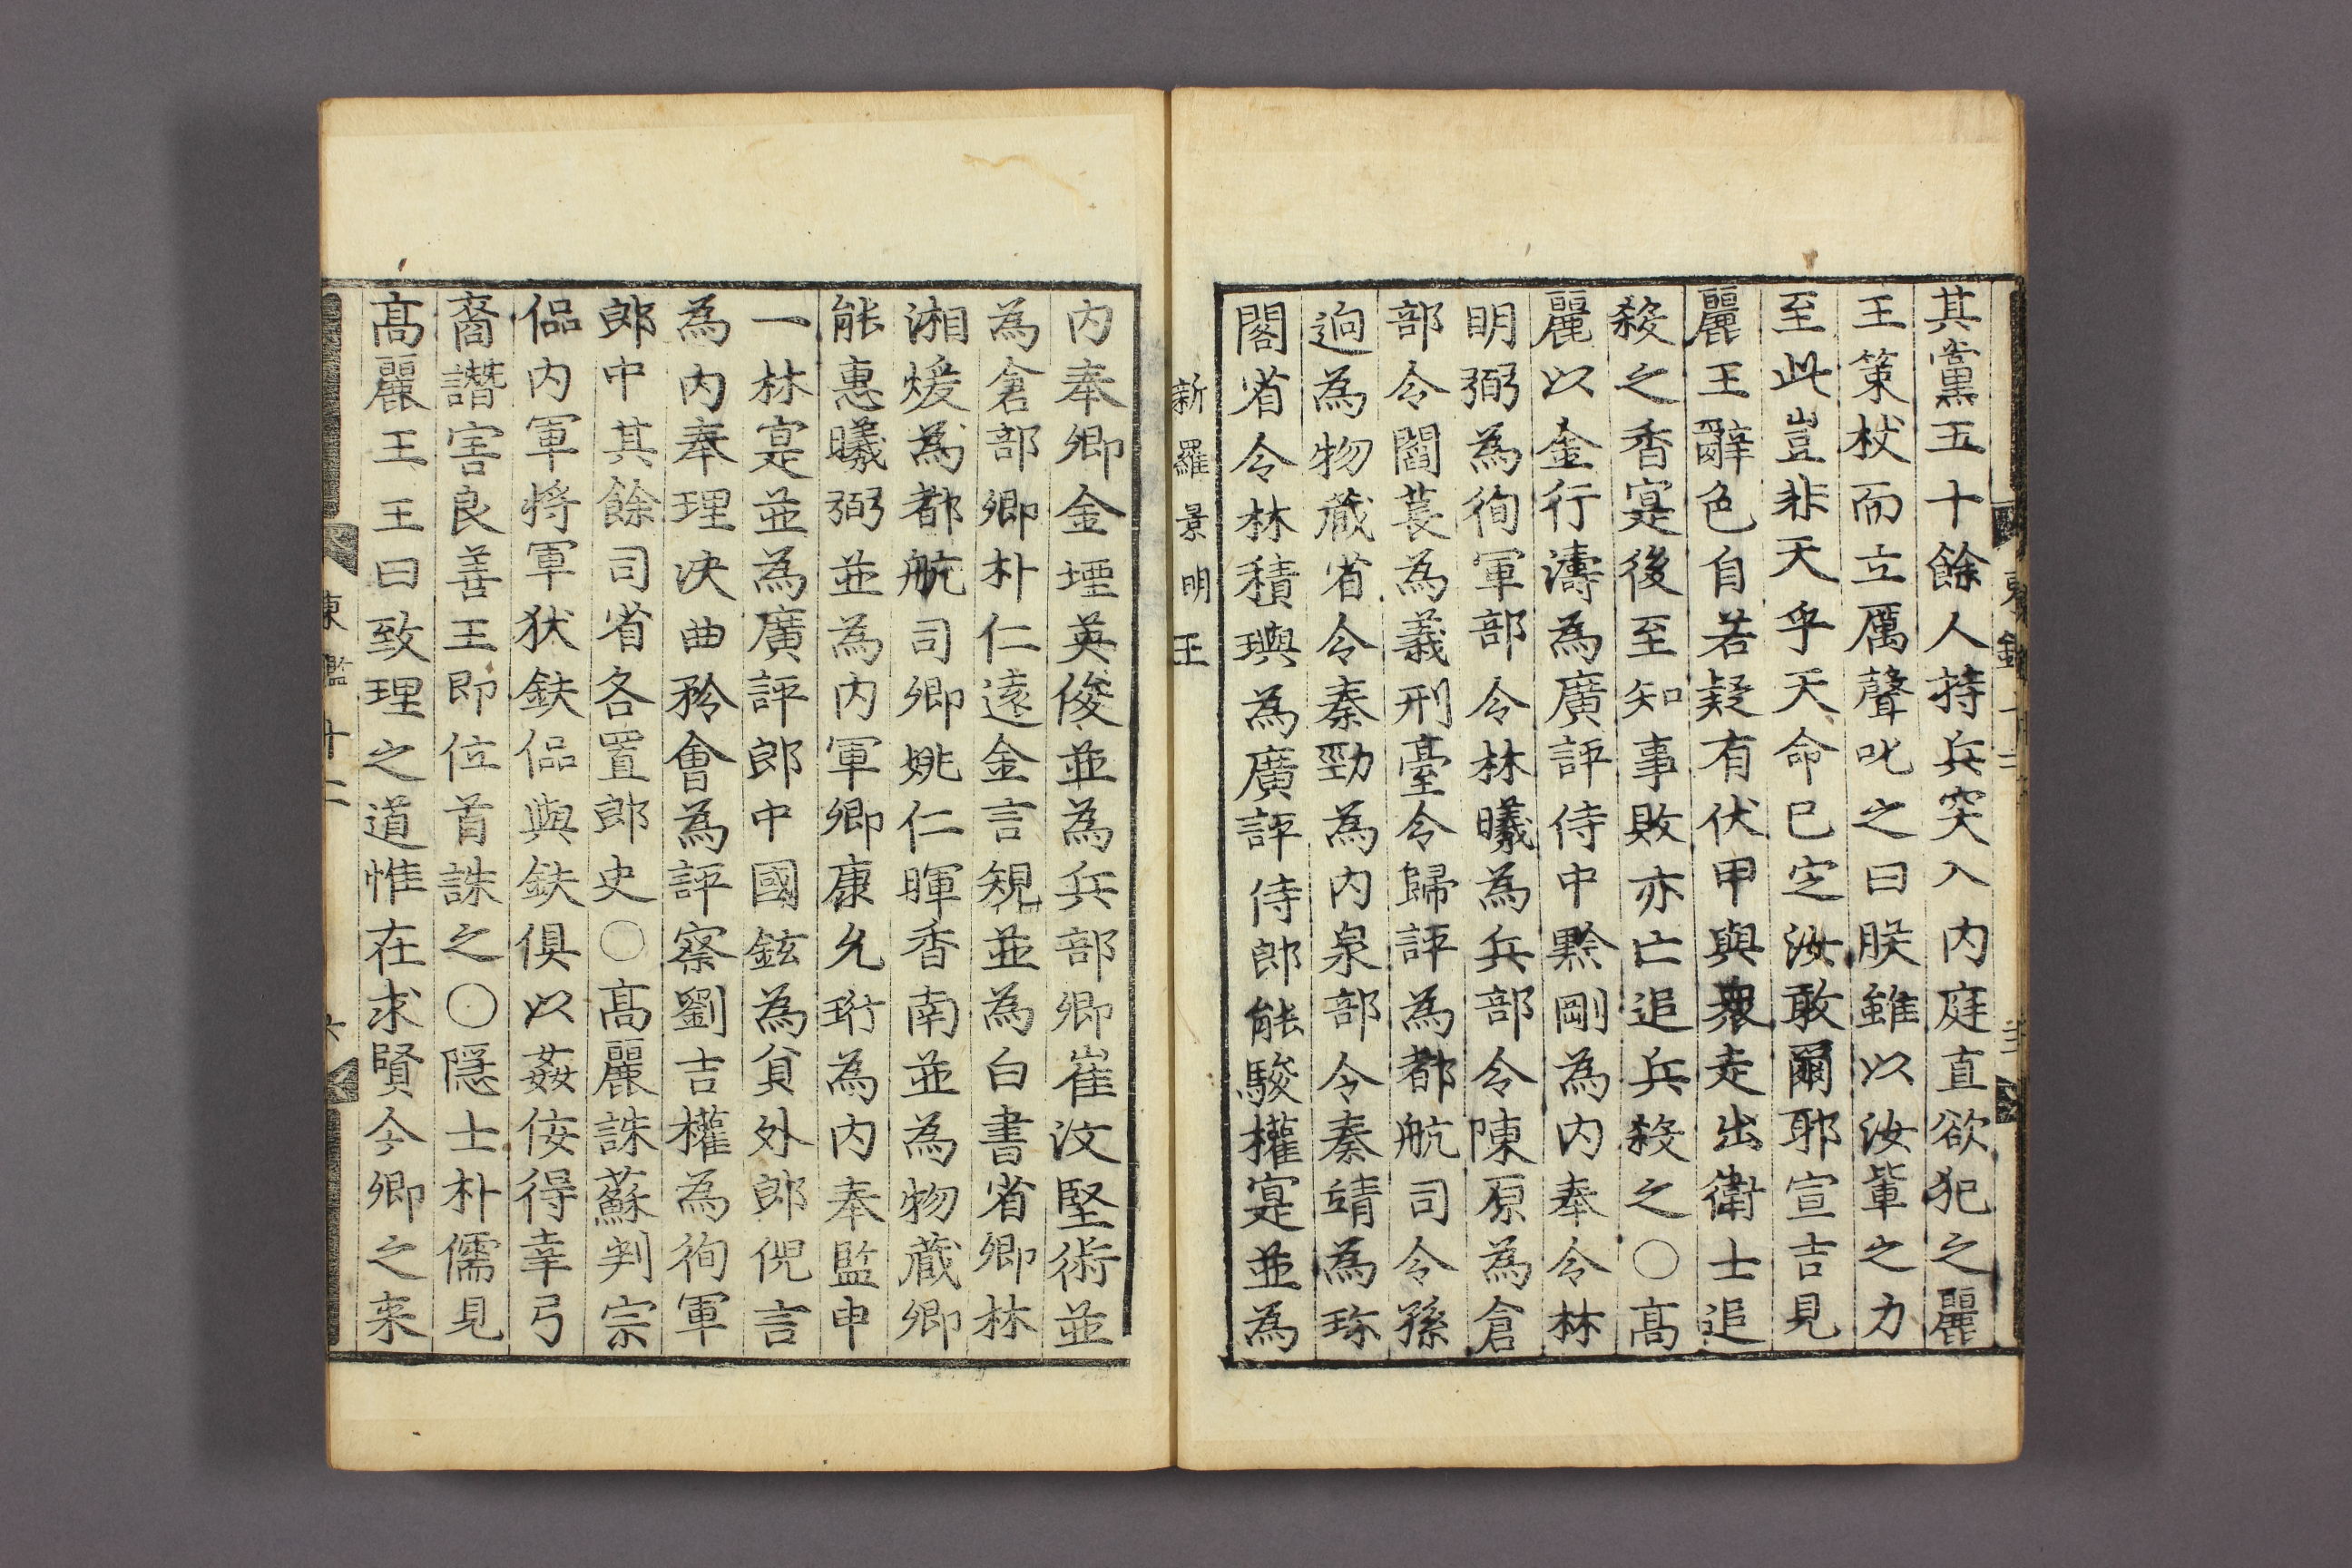 其黨五十餘人持兵突入内庭直欲犯之麗
王策杖而立厲聲叱之曰朕雖以汝輩之力
至此豈非天乎天命已定汝敢爾耶宣吉見
麗王辭色自若疑有伏甲與衆走出衛士追
殺之香寔後至知事敗亦亡追兵殺之○高
麗以金行濤為廣評侍中黔剛為内奉令林
明弼為徇軍部令林曦為兵部令陳原為倉
部令閻萇為義刑臺令歸評為都航司令孫
逈為物蔵省令秦勁為内泉部令秦靖為珎
閣省令林積璵為廣評侍郎能駿權寔並為
新羅景明王
内奉卿金堙英俊並為兵部卿崔汶堅術並
為倉部卿朴仁遠金言規並為白書省卿林
湘煖為都航司卿姚仁暉香南並為物蔵卿
能惠曦弼並為内軍卿康允珩為内奉監申
一林寔並為廣評郎中國鉉為負外郎倪言
為内奉理决曲矜會為評察劉吉權為徇軍
郎中其餘司省各置郎史○高麗誅蘇判宗
侃内軍將軍狄鈇侃與鈇俱以姦侫得幸弓
裔譖害良善王即位首誅之○隠士朴儒見
高麗王王曰致理之道惟在求賢今卿之来
東鑑十二